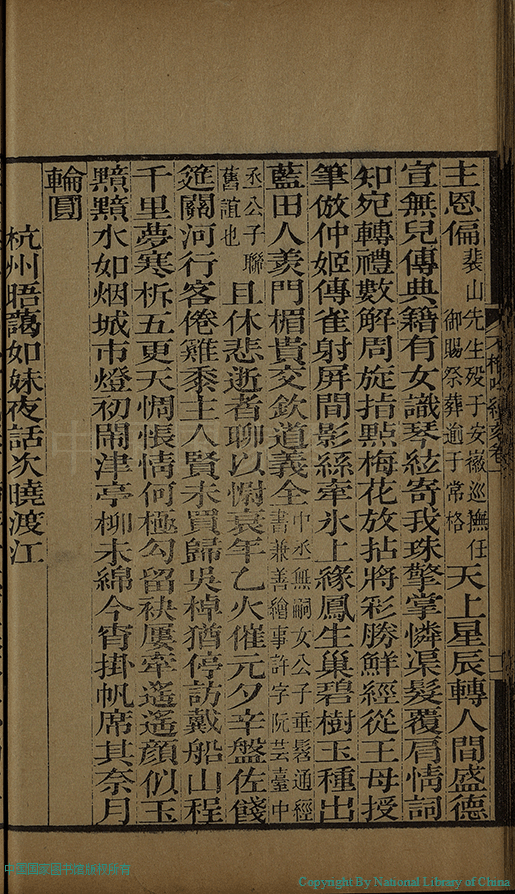 主恩偏裴山先生歿于安徽巡撫任御賜祭葬逾于常格天上星辰轉人間盛德
宣無兒傳典籍有女識琴絃寄我珠擎掌憐渠髮覆肩情詞
知宛轉禮數解周旋指點梅花放拈將彩勝鮮經從王母授
筆倣仲姬傳雀射屏間影絲牽氷上緣鳳生巢碧樹玉種出
藍田人羨門楣貴交欽道義全中丞無嗣女公子垂髫通經書兼善繪事許字阮芸臺中
丞公子聯舊誼也且休悲逝者聊以慰衰年乙火催元夕辛盤佐餞
筵關河行客倦雞黍主人賢未買歸吳棹猶停訪戴船山程
千里夢寒柝五更天惆悵情何極勾留袂屢牽遙遙顏似玉
黯黯水如烟城市燈初鬧津亭柳未綿今宵掛帆席其奈月
輪圓
杭州晤藹如妹夜話次曉渡江
中國國家圖書館版權所有
Copyright By National Library of China